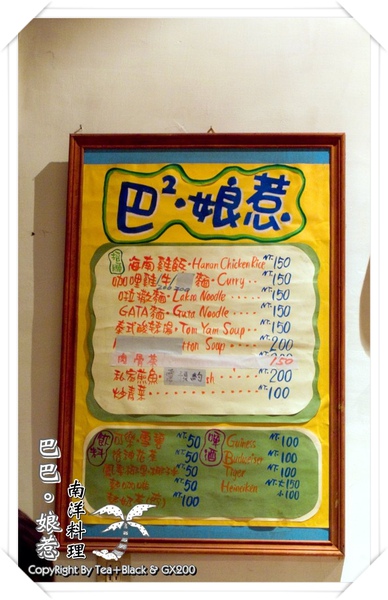 巴²·娘惹
招牌
海南雞飯·Hainan Chicken Rice NT.150
咖哩雞/牛 麵·Curry NT.150
啦撒麵·Laksa Noodle NT.150
GATA麵·Gata Noodle NT.150
泰式酸辣湯·Tom Yam Soup NT.150
Soup NT.200
肉骨茶 150
私房菜 NT.200
炒青菜 NT.100
飲料
NT.50
NT.50
NT.50
NT.50
NT.100
啤酒
Guiness NT.100
Budweiser NT.100
Tiger NT.100
Heineken NT.大150
小100
巴巴。娘惹
南洋料理
CopyRight By Tea+Black & GX200